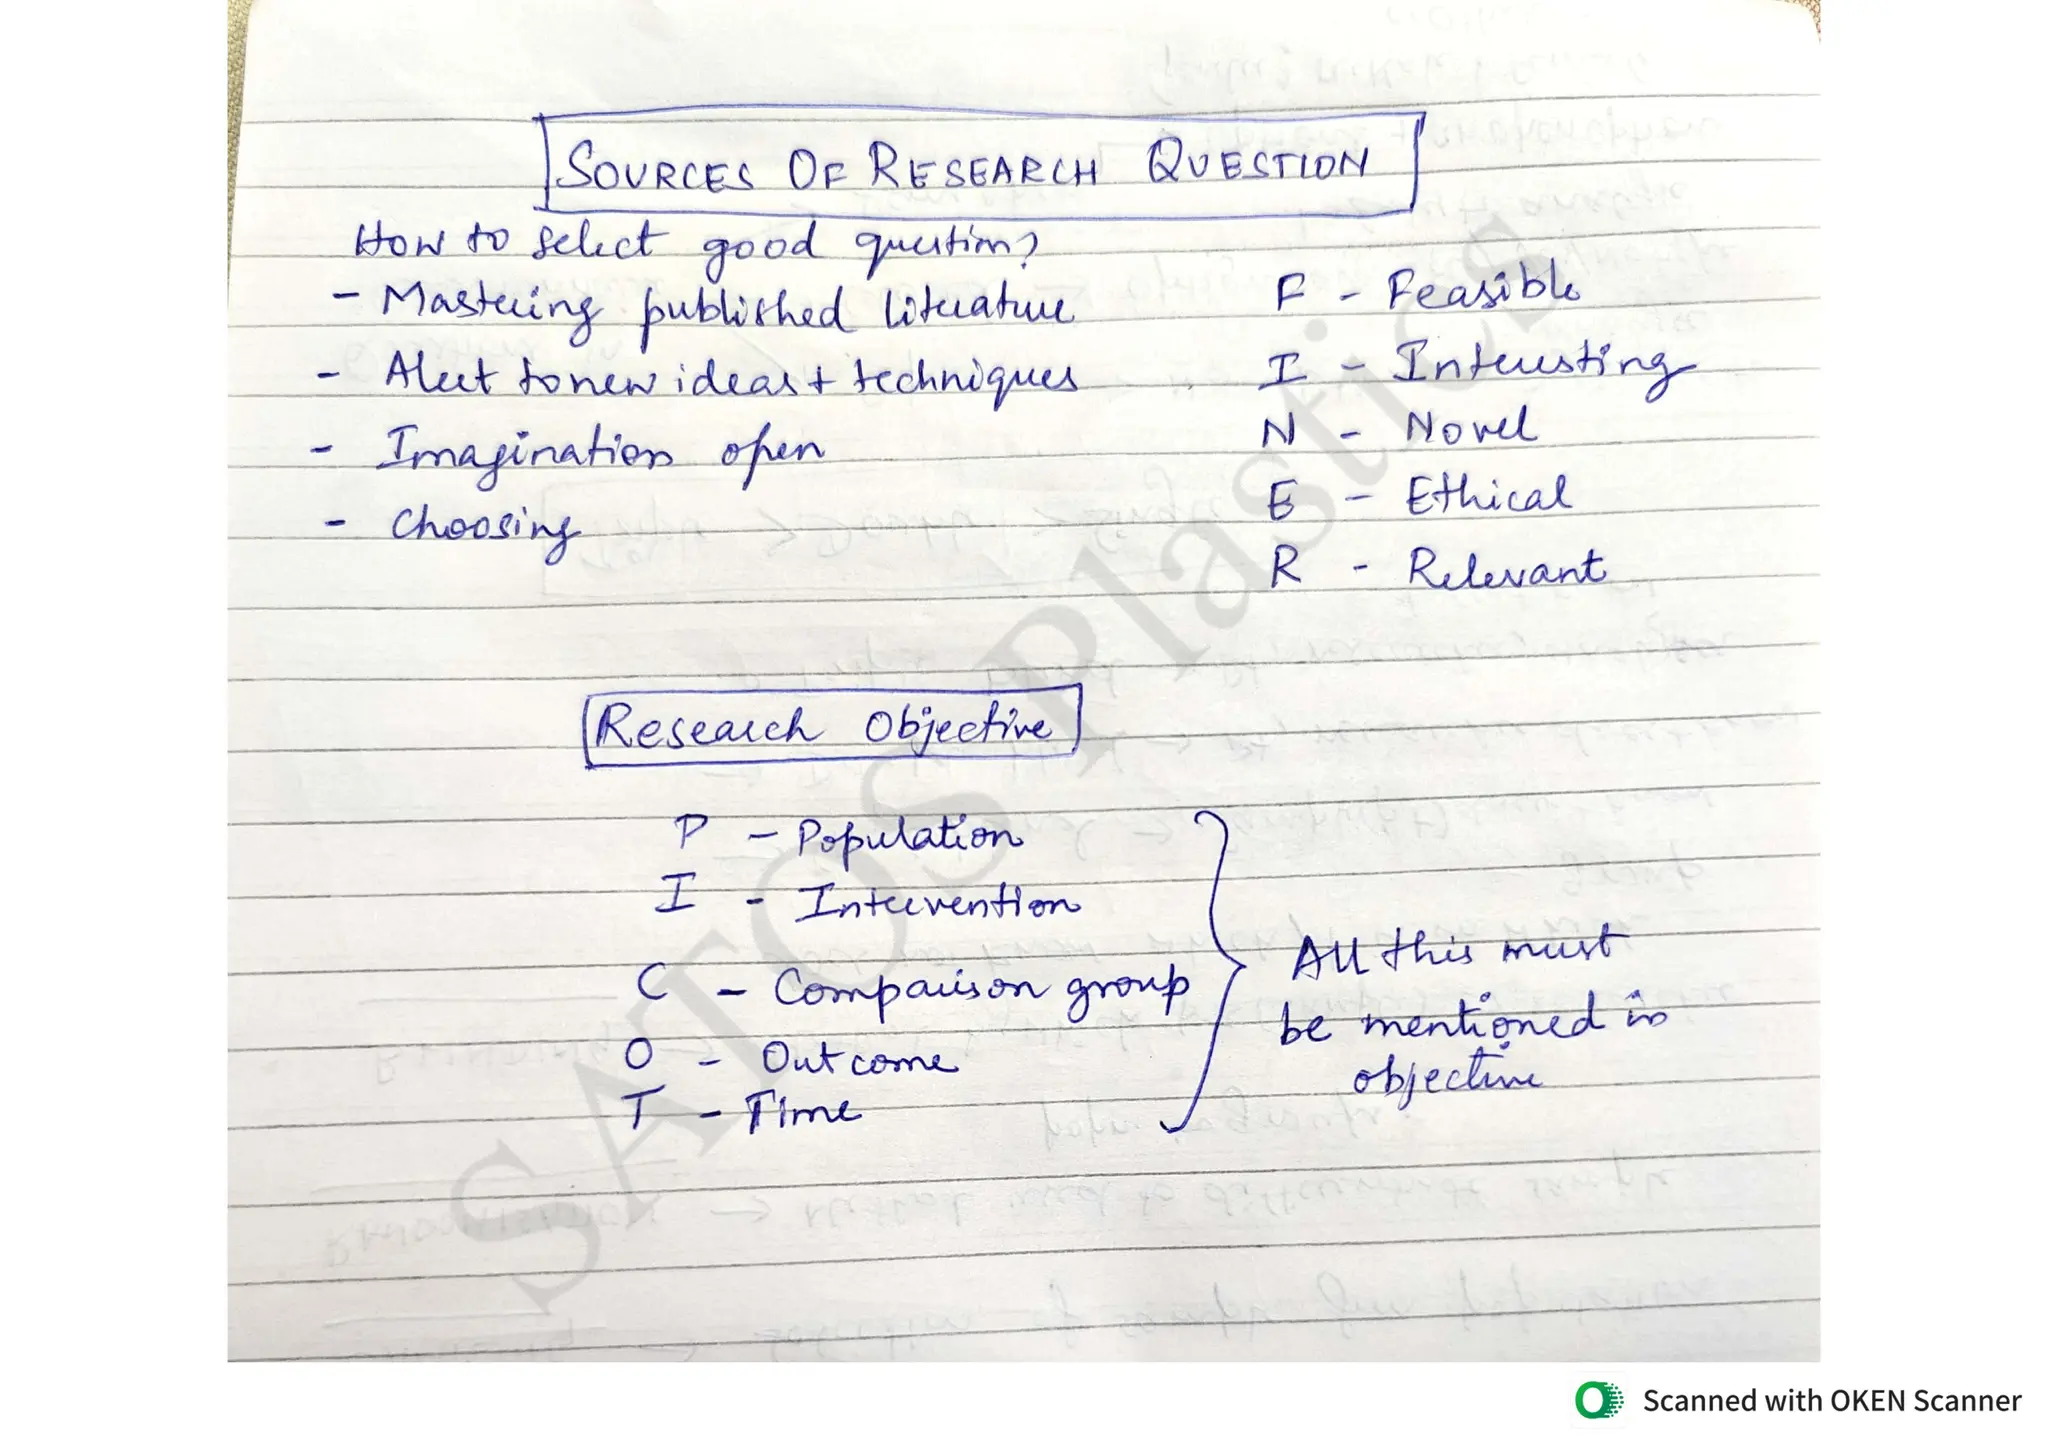 SOURCES OF RESEARCH QUESTION
How to select good question?
- Mastering published literature
- Alert to new ideas + techniques
- Imagination open
- Choosing
F - Feasible
I - Interesting
N - Novel
E - Ethical
R - Relevant
Research Objective
P - Population
I - Intervention
C - Comparison group
O - Outcome
T - Time
All this must
be mentioned in
objective
SATOS Plastics
Scanned with OKEN Scanner